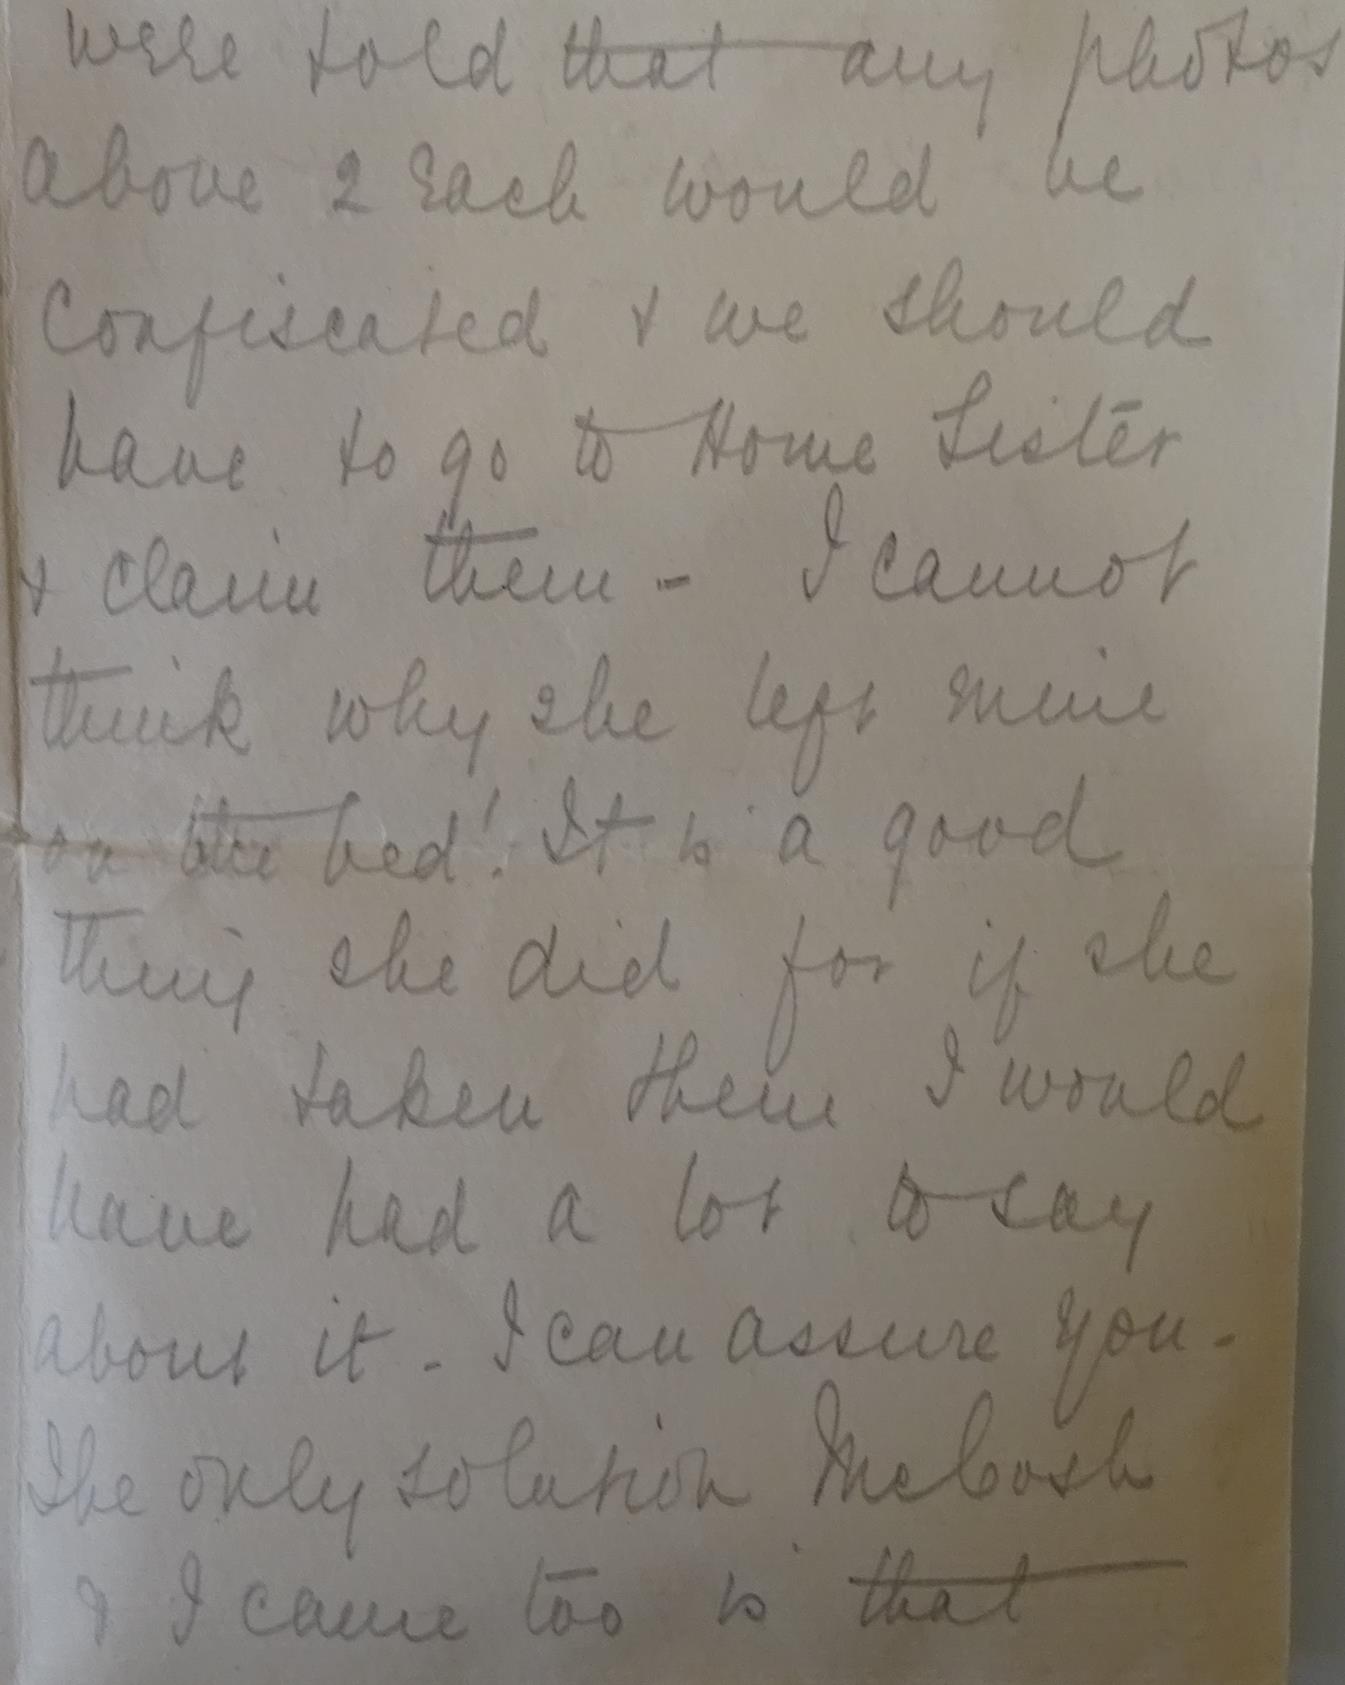 were told that any photos
above 2 each would be
confiscated & we should
have to go to Home Sister
& claim them - I cannot
think why she left mine
on the bed! It is a good
thing she did for if she
had taken them I would
have had a lot to say
about it - I can assure you -
The only solution McCosh
& I came too is that